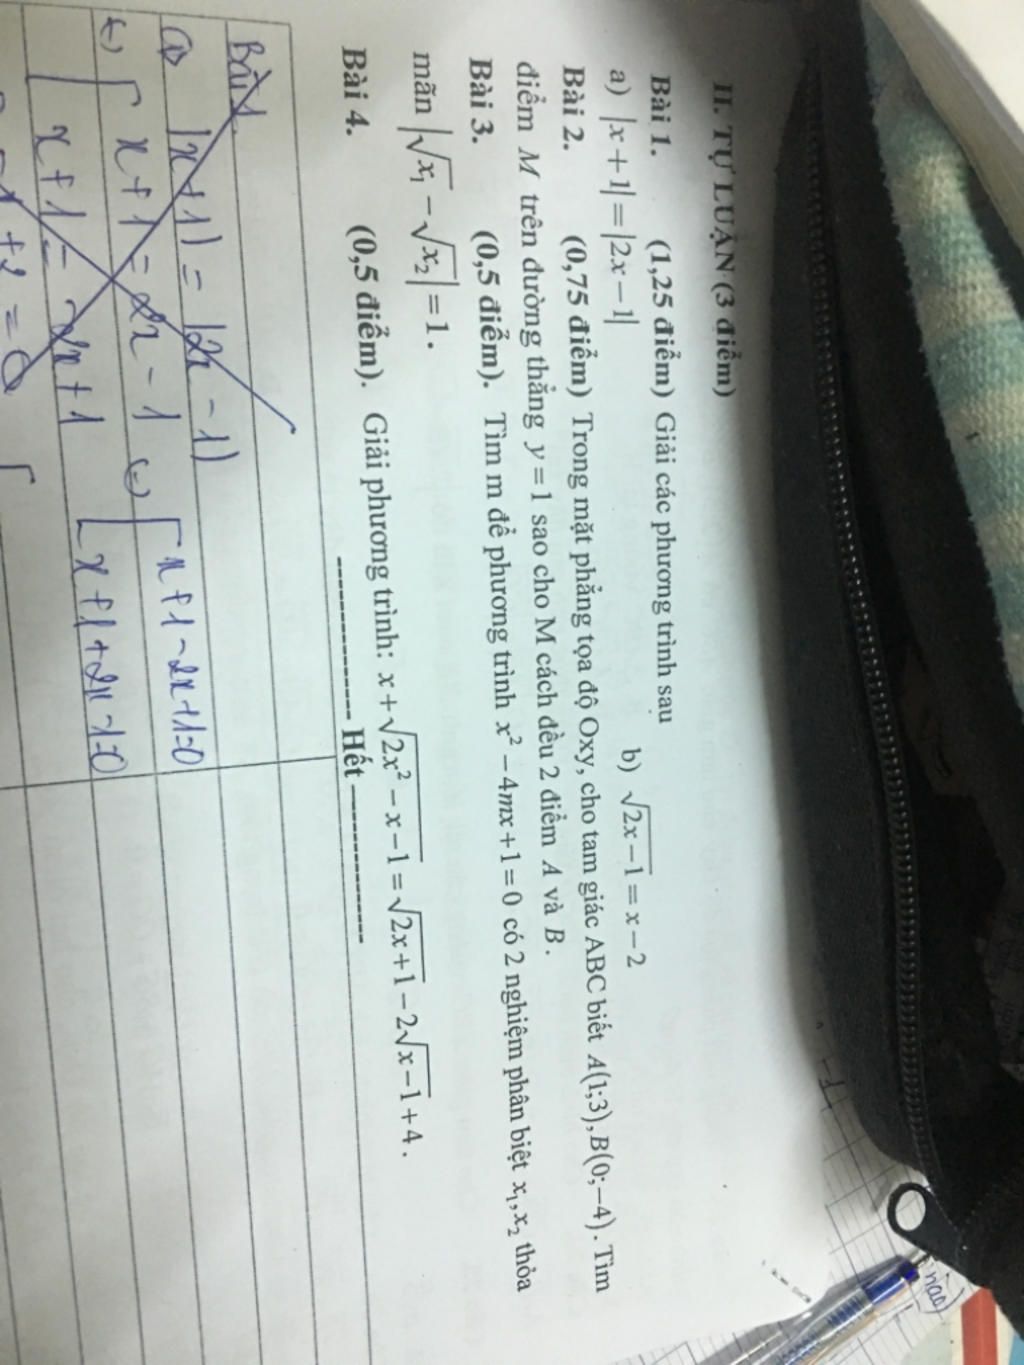 II. TỰ LUẬN (3 điểm)
Bài 1. (1,25 điểm) Giải các phương trình sau
a) |x+1|=|2x−1| b) √(2x−1) = x−2
Bài 2. (0,75 điểm) Trong mặt phẳng tọa độ Oxy, cho tam giác ABC biết A(1;3), B(0;−4). Tìm
điểm M trên đường thẳng y=1 sao cho M cách đều 2 điểm A và B.
Bài 3. (0,5 điểm). Tìm m để phương trình x²−4mx+1=0 có 2 nghiệm phân biệt x₁,x₂ thỏa
mãn |√x₁−√x₂|=1.
Bài 4. (0,5 điểm). Giải phương trình: x+√(2x²−x−1)=√(2x+1)−2√(x−1)+4.
Hết
Bài 1
a) |x+1| = |2x−1|
x+1 = 2x−1
x+1−2x+1=0
x+1 = −2x+1
x+1+2x−1=0
+2=0
nào)